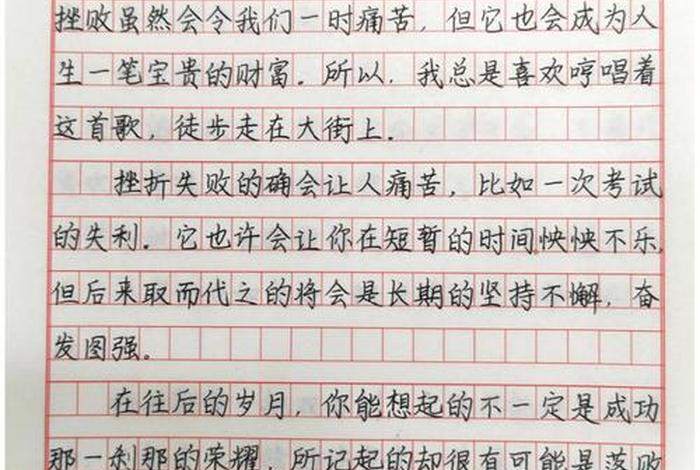 挫败虽然会令我们一时痛苦，但它也会成为人
生一笔宝贵的财富．所以，我总是喜欢哼唱着
这首歌，徒步走在大街上．
挫折失败的确会让人痛苦，比如一次考试
的失利．它也许会让你在短暂的时间怏怏不乐，
但后来取而代之的将会是长期的坚持不懈，奋
发图强。
在往后的岁月，你能想起的不一定是成功
那一刹那的荣耀，所记起的却很有可能是落败